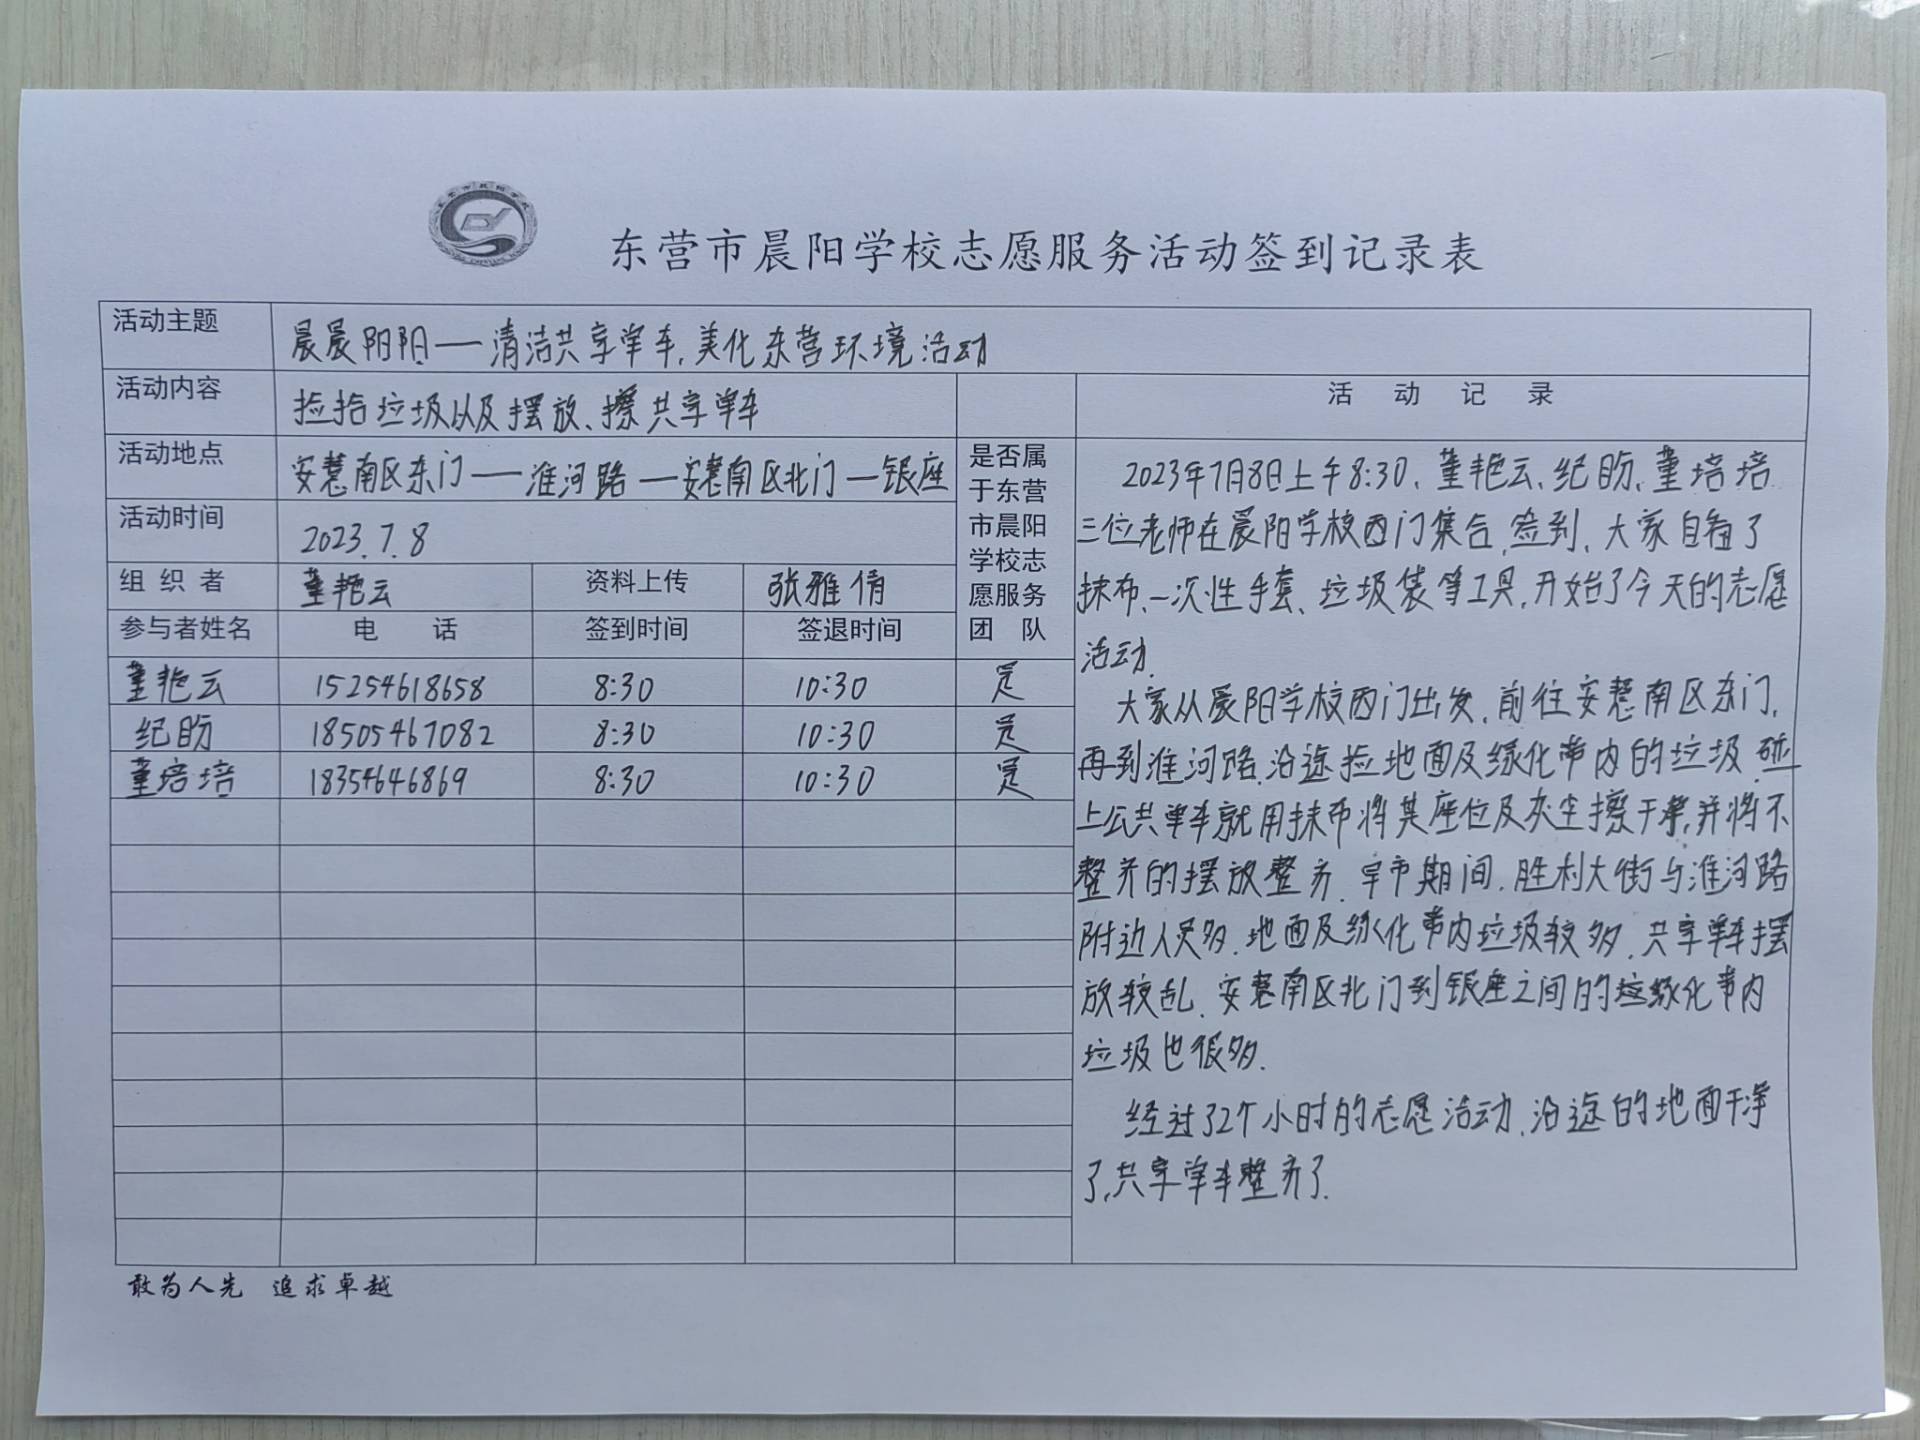 东营市晨阳学校志愿服务活动签到记录表
活动主题 晨晨阳阳——清洁共享单车,美化东营环境活动
活动内容 捡拾垃圾以及摆放、擦共享单车
活动地点 安慧南区东门——淮河路—安慧南区北门—银座
活动时间 2023.7.8
组织者 董艳云 资料上传 张雅倩
参与者姓名 电 话 签到时间 签退时间
是否属
于东营
市晨阳
学校志
愿服务
团 队
董艳云 15254618658 8:30 10:30 是
纪盼 18505467082 8:30 10:30 是
董培培 18354646869 8:30 10:30 是
活 动 记 录
2023年7月8日上午8:30,董艳云、纪盼、董培培
三位老师在晨阳学校西门集合,签到,大家自备了
抹布、一次性手套、垃圾袋等工具,开始了今天的志愿
活动.
大家从晨阳学校西门出发,前往安慧南区东门,
再到淮河路,沿途捡地面及绿化带内的垃圾,碰
上公共单车就用抹布将其座位及灰尘擦干净,并将不
整齐的摆放整齐.早市期间,胜利大街与淮河路
附近人员多,地面及绿化带内垃圾较多,共享单车摆
放较乱.安慧南区北门到银座之间的绿化带内
垃圾也很多.
经过了2个小时的志愿活动,沿途的地面干净
了,共享单车整齐了.
敢为人先 追求卓越